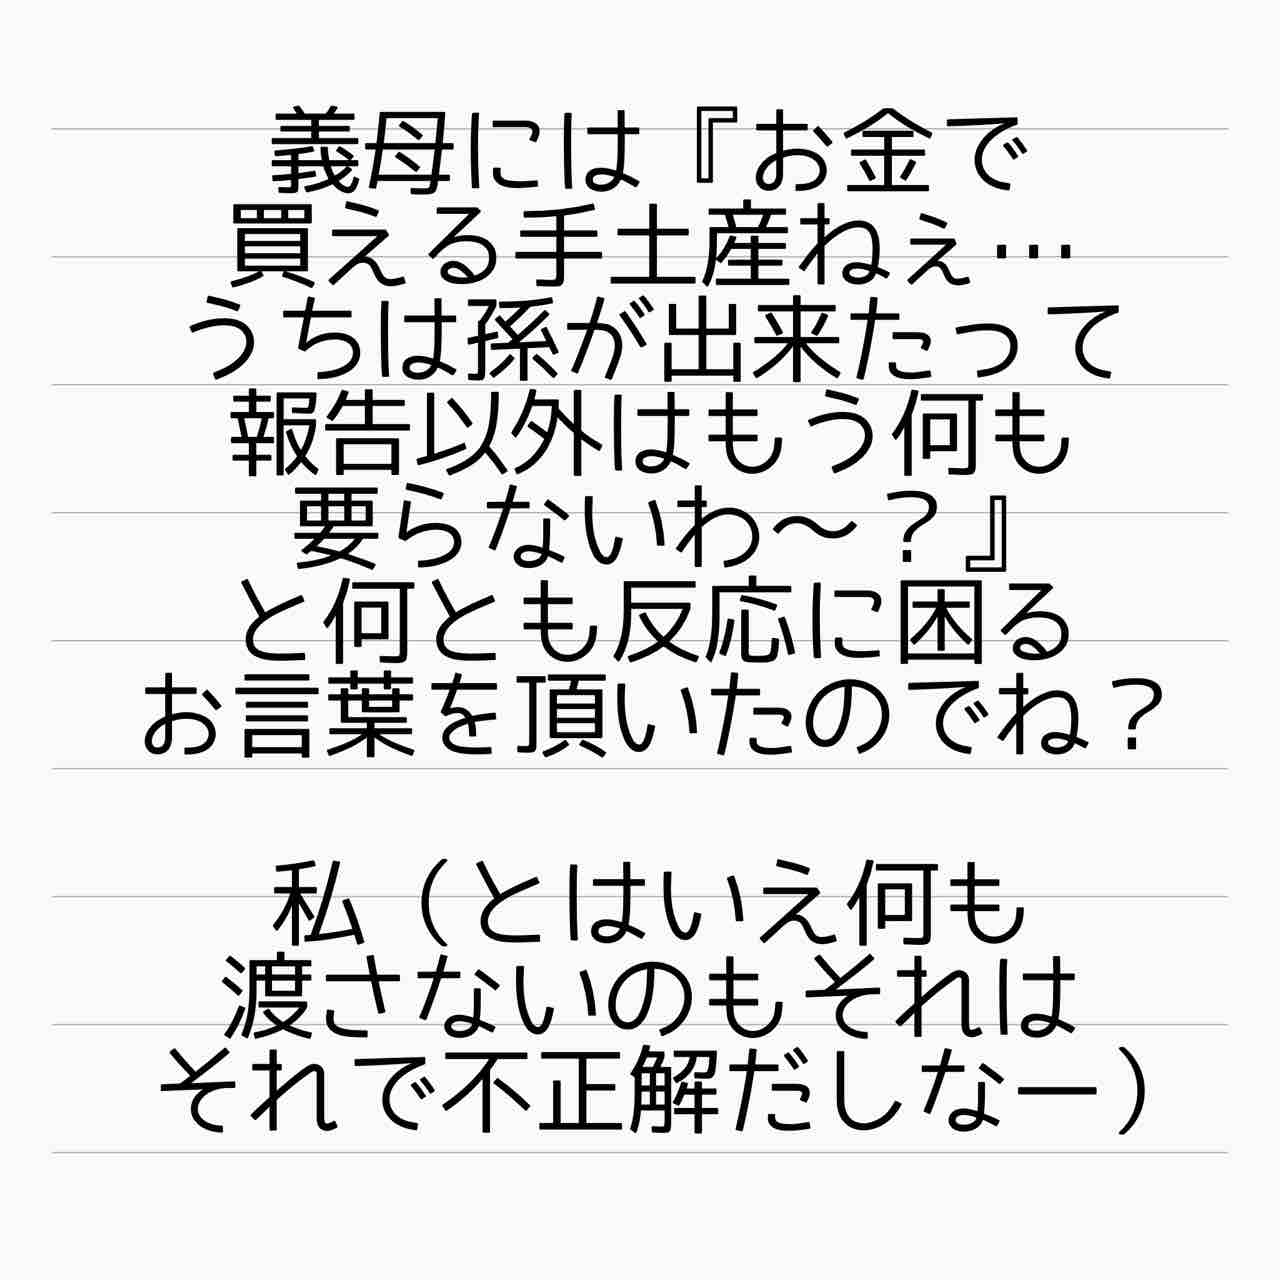 義母には『お金で
買える手土産ねぇ…
うちは孫が出来たって
報告以外はもう何も
要らないわ〜？』
と何とも反応に困る
お言葉を頂いたのでね？
私（とはいえ何も
渡さないのもそれは
それで不正解だしなー）